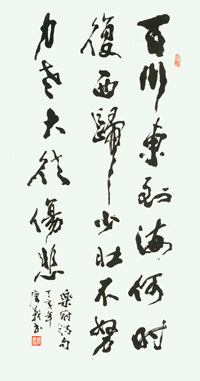 百川東到海何時
復西歸少壯不努
力老大徒傷悲
樂府詩句
丁亥年